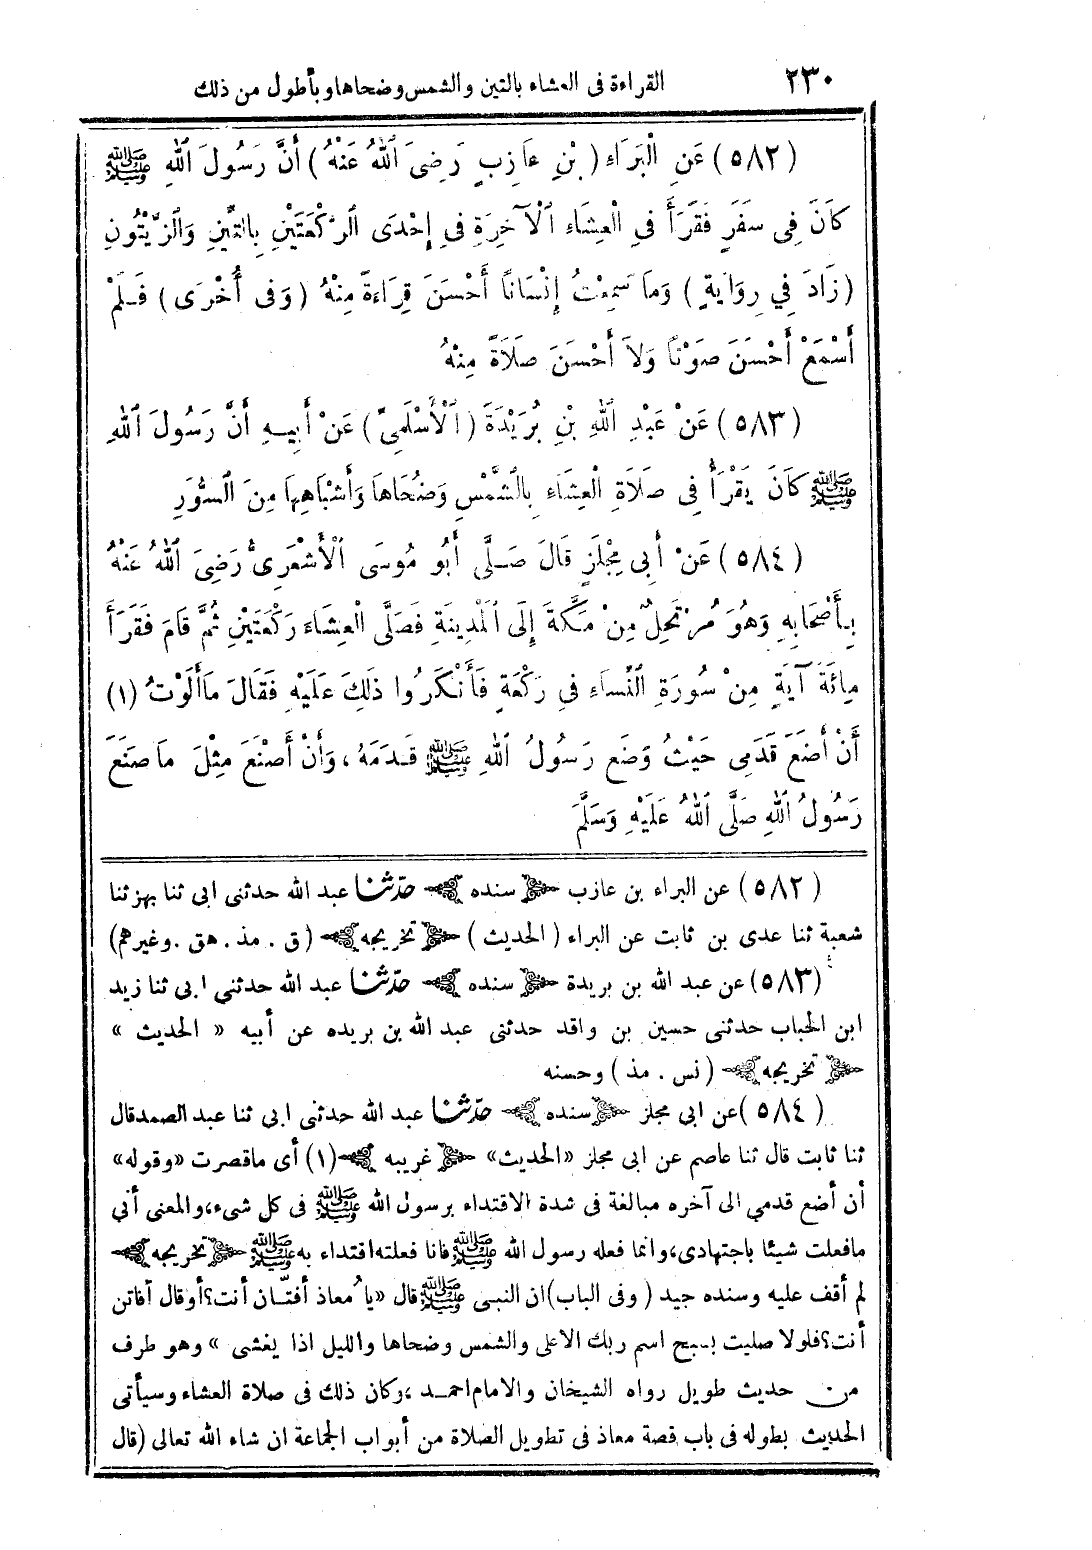 ٢٣٠ القراءة فى العشاء بالتين والشمس وضحاها وبأطول من ذلك
(٥٨٢) عَنِ الْبَرَاءِ (بْنِ عَازِبٍ رَضِىَ اللهُ عَنْهُ) أَنَّ رَسُولَ اللهِ ﷺ
كَانَ فِى سَفَرٍ فَقَرَأَ فىِ الْعِشَاءِ الْآخِرَةِ فىِ إِحْدَى الرَّكْعَتَيْنِ بِالتِّينِ وَالزَّيْتُونِ
(زَادَ فِي رِوَايَةٍ) وَمَا سَمِعْتُ إِنْسَانًا أَحْسَنَ قِرَاءَةً مِنْهُ (وَفى أُخْرَى) فَـلَمْ
أَسْمَعْ أَحْسَنَ صَوْتًا وَلاَ أَحْسَنَ صَلَاةً مِنْهُ
(٥٨٣) عَنْ عَبْدِ اللهِ بْنِ بُرَيْدَةَ (الْأَسْلَمِىِّ) عَنْ أَبِيـهِ أَنَّ رَسُولَ اللهِ
ﷺ كَانَ يَقْرَأُ فِى صَلَاةِ الْعِشَاءِ بِالشَّمْسِ وَضُحَاهَا وَأَشْبَاهِهَا مِنَ السُّوَرِ
(٥٨٤) عَنْ أَبِى مِجْلَزٍ قَالَ صَـلَّى أَبُو مُوسَى الْأَشْعَرِىُّ رَضِىَ اللهُ عَنْهُ
بِأَصْحَابِهِ وَهُوَ مُرْتَحِلٌ مِنْ مَكَّةَ إِلَى الْمَدِينَةِ فَصَلَّى الْعِشَاءَ رَكْعَتَيْنِ ثُمَّ قَامَ فَقَرَأَ
مِائَةَ آيَةٍ مِنْ سُورَةِ النِّسَاءِ فىِ رَكْعَةٍ فَأَنْكَرُوا ذٰلِكَ عَلَيْهِ فَقَالَ مَاأَلَوْتُ (١)
أَنْ أَضَعَ قَدَمِى حَيْثُ وَضَعَ رَسُولُ اللهِ ﷺ قَـدَمَهُ، وَأَنْ أَصْنَعَ مِثْلَ مَا صَنَعَ
رَسُولُ اللهِ صَلَّى اللهُ عَلَيْهِ وَسَلَّمَ
(٥٨٢) عن البراء بن عازب ﴿سنده﴾ حدّثنا عبد الله حدثنى ابى ثنا بهز ثنا
شعبة ثنا عدى بن ثابت عن البراء (الحديث) ﴿تخريجه﴾ (ق . مذ . هق . وغيرهم)
(٥٨٣) عن عبد الله بن بريدة ﴿سنده﴾ حدّثنا عبد الله حدثني ابى ثنا زيد
ابن الحباب حدثنى حسين بن واقد حدثنى عبد الله بن بريده عن أبيه « الحديث »
﴿تخريجه﴾ (نس . مذ) وحسنه
(٥٨٤) عن ابى مجلز ﴿سنده﴾ حدّثنا عبد الله حدثنى ابى ثنا عبد الصمدقال
ثنا ثابت قال ثنا عاصم عن ابى مجلز «الحديث» ﴿غريبه﴾ (١) أى ماقصرت «وقوله»
أن أضع قدمي الى آخره مبالغة فى شدة الاقتداء برسول الله ﷺ فى كل شىء، والمعنى أنى
مافعلت شيئا باجتهادى، وانما فعله رسول الله ﷺ فانا فعلته اقتداء به ﷺ ﴿تخريجه﴾
لم أقف عليه وسنده جيد (وفى الباب) ان النبى ﷺ قال «يا مُعاذ أفتّـان أنت؟أوقال أفاتن
أنت؟فلولا صليت بسبح اسم ربك الاعلى والشمس وضحاها والليل اذا يغشى » وهو طرف
من حديث طويل رواه الشيخان والامام احمـد ،وكان ذلك فى صلاة العشاء وسيأتى
الحديث بطوله فى باب قصة معاذ فى تطويل الصلاة من أبواب الجماعة ان شاء الله تعالى (قال